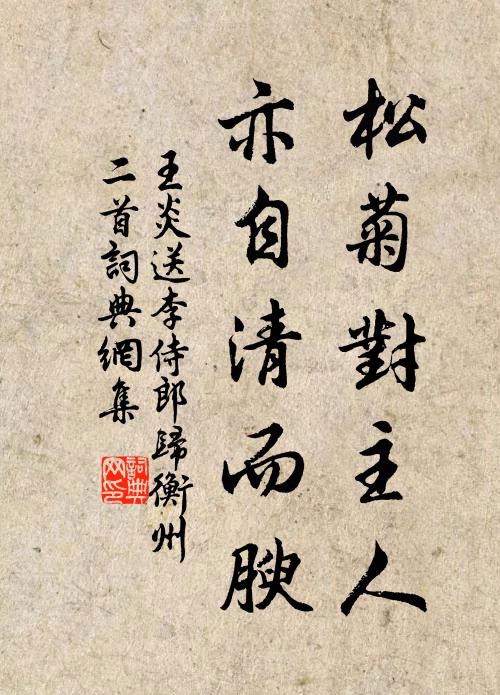 松菊對主人
亦自清而腴
王炎送李侍郎歸衡州
二首詞典網集
詞典
网印